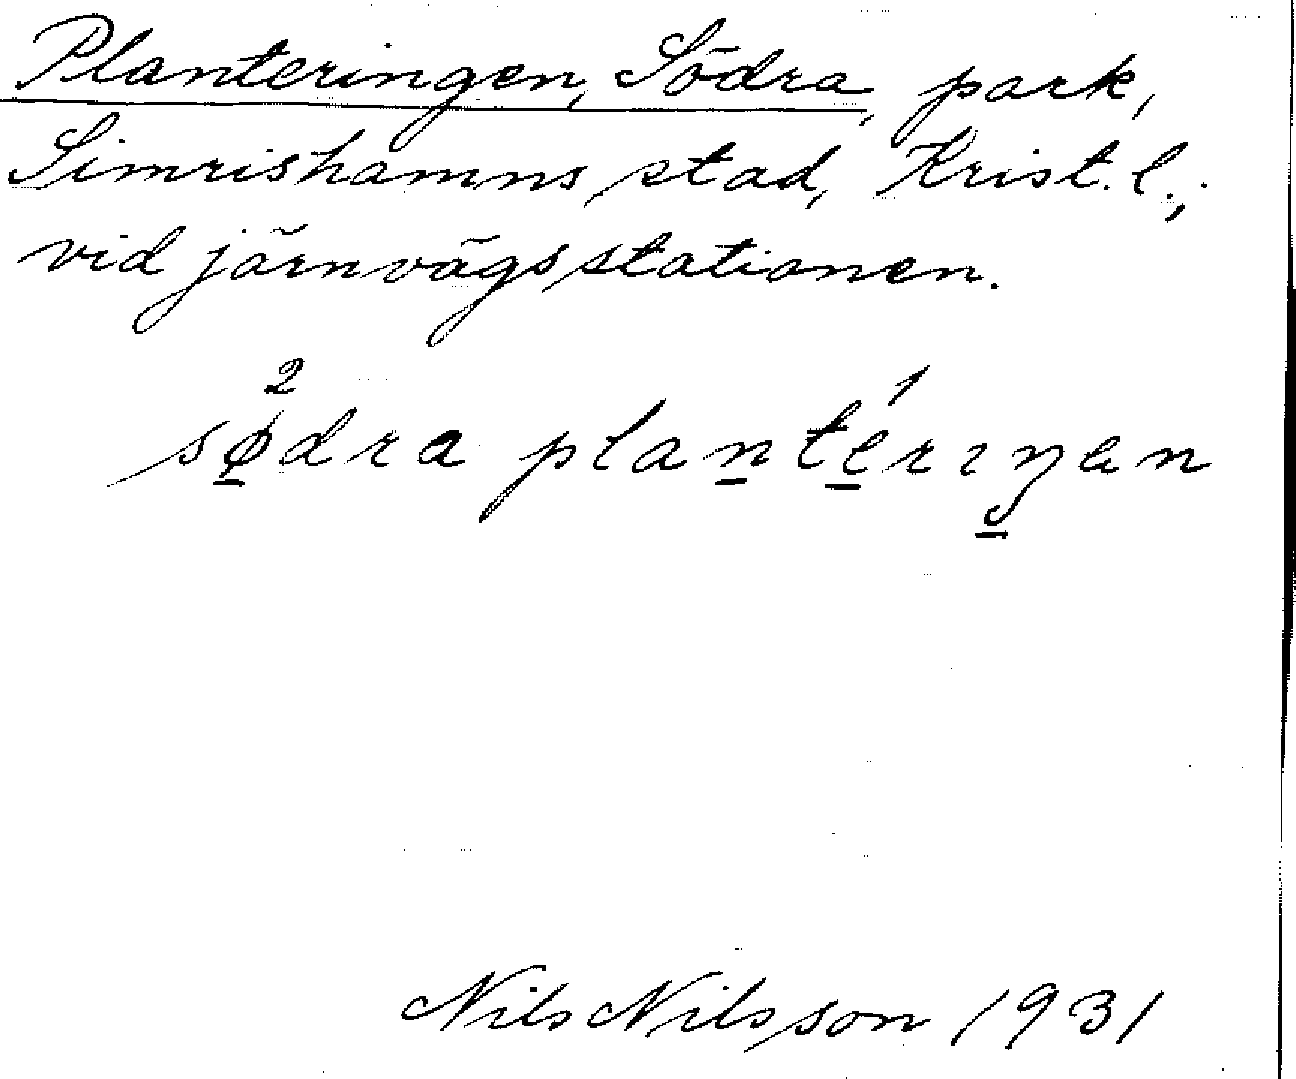 Planteringen, Södra, park,
Simrishamns stad, Krist. l.;
vid järnvägsstationen.
2 1
sødra plantérıŋen
Nils Nilsson 1931